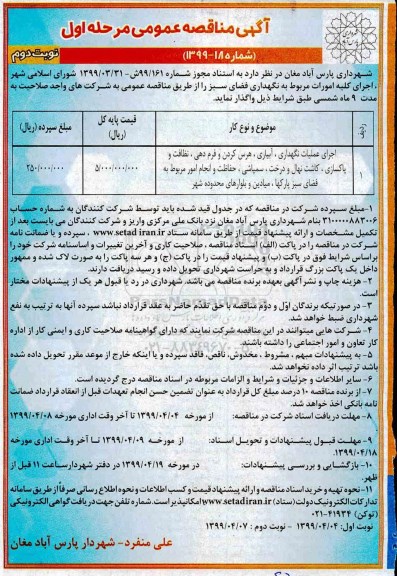 آگهی مناقصه عمومی مرحله اول
(شماره ۱۸-۱۳۹۹)
نوبت دوم
شهرداری پارس آباد مغان در نظر دارد به استناد مجوز شماره ۹۹/۱۶۱ش-۱۳۹۹/۰۳/۳۱ شورای اسلامی شهر
، اجرای کلیه امورات مربوط به نگهداری فضای سبز را از طریق مناقصه عمومی به شرکت های واجد صلاحیت به
مدت ۹ ماه شمسی طبق شرایط ذیل واگذار نماید.
ردیف
موضوع و نوع کار
قیمت پایه کل (ریال)
مبلغ سپرده (ریال)
۱
اجرای عملیات نگهداری ، آبیاری ، هرس کردن و فرم دهی ، نظافت و
پاکسازی ، کاشت نهال و درخت ، سمپاشی ، حفاظت و انجام امور مربوط به
فضای سبز پارکها، میادین و بلوارهای محدوده شهر
۵/۰۰۰/۰۰۰/۰۰۰
۲۵۰/۰۰۰/۰۰۰
۱-مبلغ سپرده شرکت در مناقصه که در جدول قید شده باید توسط شرکت کنندگان به شماره حساب
۳۱۰۰۰۰۰۸۸۳۰۰۶ بنام شهرداری پارس آباد مغان نزد بانک ملی مرکزی واریز و شرکت کنندگان می بایست بعد از
تکمیل مشخصات و ارائه پیشنهاد قیمت از طریق سامانه ستاد www.setadiran.ir ، سپرده و یا ضمانت نامه
شرکت در مناقصه را در پاکت (الف) ، اسناد مناقصه ، صلاحیت کاری و آخرین تغییرات و اساسنامه شرکت خود را
براساس شرایط فوق در پاکت (ب) و پیشنهاد قیمت را در پاکت (ج) و هر سه پاکت را به صورت لاک شده و ممهور
داخل یک پاکت بزرگ قرارداد و به حراست شهرداری تحویل داده و رسید دریافت دارند.
۲- هزینه چاپ و نشر آگهی بعهده برنده مناقصه می باشد. شهرداری در رد یا قبول هر یک از پیشنهادات مختار
است.
۳- در صورتیکه برندگان اول و دوم مناقصه با حق تقدم حاضر به عقد قرارداد نباشد سپرده آنها به ترتیب به نفع
شهرداری ضبط خواهد شد.
۴- شرکت هایی میتوانند در این مناقصه شرکت نمایند که دارای گواهینامه صلاحیت کاری و ایمنی کار از اداره
کار تعاون و امور اجتماعی را داشته باشند.
۵- به پیشنهادات مبهم ، مشروط ، مخدوش، ناقص، فاقد سپرده و یا اینکه خارج از موعد مقرر تحویل داده شده
باشد ترتیب اثر داده نخواهد شد.
۶- سایر اطلاعات و جزئیات و شرایط و الزامات مربوطه در اسناد مناقصه درج گردیده است.
۷- از برنده مناقصه ۱۰ درصد مبلغ کل قرارداد به عنوان تضمین حسن انجام تعهدات قبل از انعقاد قرارداد ضمانت
نامه بانکی اخذ خواهد شد.
۸- مهلت دریافت اسناد شرکت در مناقصه: از مورخه ۱۳۹۹/۰۴/۰۴ تا آخر وقت اداری مورخه ۱۳۹۹/۰۴/۰۸
۹- مهلت قبول پیشنهادات و تحویل اسناد: از مورخه ۱۳۹۹/۰۴/۰۹ تا آخر وقت اداری مورخه
۱۳۹۹/۰۴/۱۸.
۱۰- بازگشایی و بررسی پیشنهادات: در مورخه ۱۳۹۹/۰۴/۱۹ در دفتر شهردار ساعت ۱۱ قبل از
ظهر.
۱۱- نحوه تهیه و خرید اسناد مناقصه و ارائه پیشنهاد قیمت و کسب اطلاعات و نحوه اطلاع رسانی صرفاً از طریق سامانه
تدارکات الکترونیک دولت (ستاد) www.setadiran.ir امکانپذیر است. شماره تلفن جهت دریافت گواهی الکترونیکی
(توکن) ۴۱۹۳۴-۰۲۱
نوبت اول: ۱۳۹۹/۰۴/۰۴ - نوبت دوم : ۱۳۹۹/۰۴/۰۷
علی منفرد- شهردار پارس آباد مغان